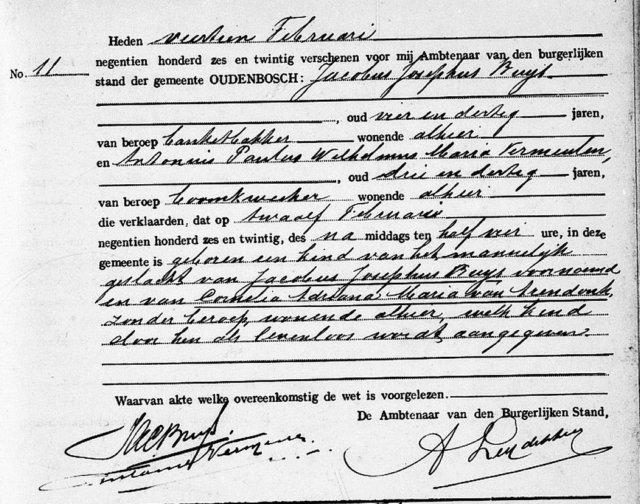 Heden veertien Februari
negentien honderd zes en twintig verschenen voor mij Ambtenaar van den burgerlijken
No. 11
stand der gemeente OUDENBOSCH: Jacobus Josephus Buijs
, oud vier en dertig jaren,
van beroep banketbakker wonende alhier
en Antonius Paulus Wilhelmus Maria Vermeulen,
, oud drie en dertig jaren,
van beroep boomkweeker wonende alhier
die verklaarden, dat op twaalf Februari
negentien honderd zes en twintig, des na middags ten half vier ure, in deze
gemeente is geboren een kind van het mannelijk
geslacht van Jacobus Josephus Buijs voornoemd
en van Cornelia Adriana Maria van Arendonk,
zonder beroep, wonende alhier, welk kind
door hen als levenloos wordt aangegeven.
Waarvan akte welke overeenkomstig de wet is voorgelezen.
De Ambtenaar van den Burgerlijken Stand,